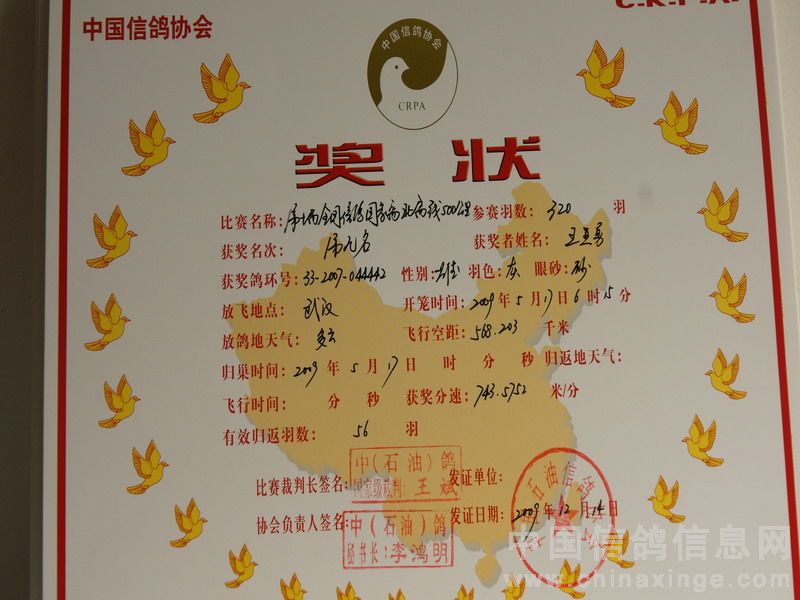 中国信鸽协会
C.R.P.A.
中国信鸽协会
CRPA
奖 状
比赛名称: 全国信鸽国家赛 500公里 参赛羽数: 320 羽
获奖名次: 第九名 获奖者姓名:
获奖鸽环号: 33-2007-044442 性别: 雄 羽色: 灰 眼砂: 砂
放飞地点: 武汉 开笼时间: 2009年5月17日6时15分
放鸽地天气: 多云 飞行空距: 568.203 千米
归巢时间: 2009年5月17日 时 分 秒 归返地天气:
飞行时间: 分 秒 获奖分速: 743.5752 米/分
有效归返羽数: 56 羽
中(石油)鸽
比赛裁判长签名: 国家级裁判: 王斌 发证单位:
石油信鸽
中(石油)鸽
协会负责人签名: 秘书长: 李鸿明 发证日期: 2009年12月14日
中国信鸽信息网
www.chinaxinge.com